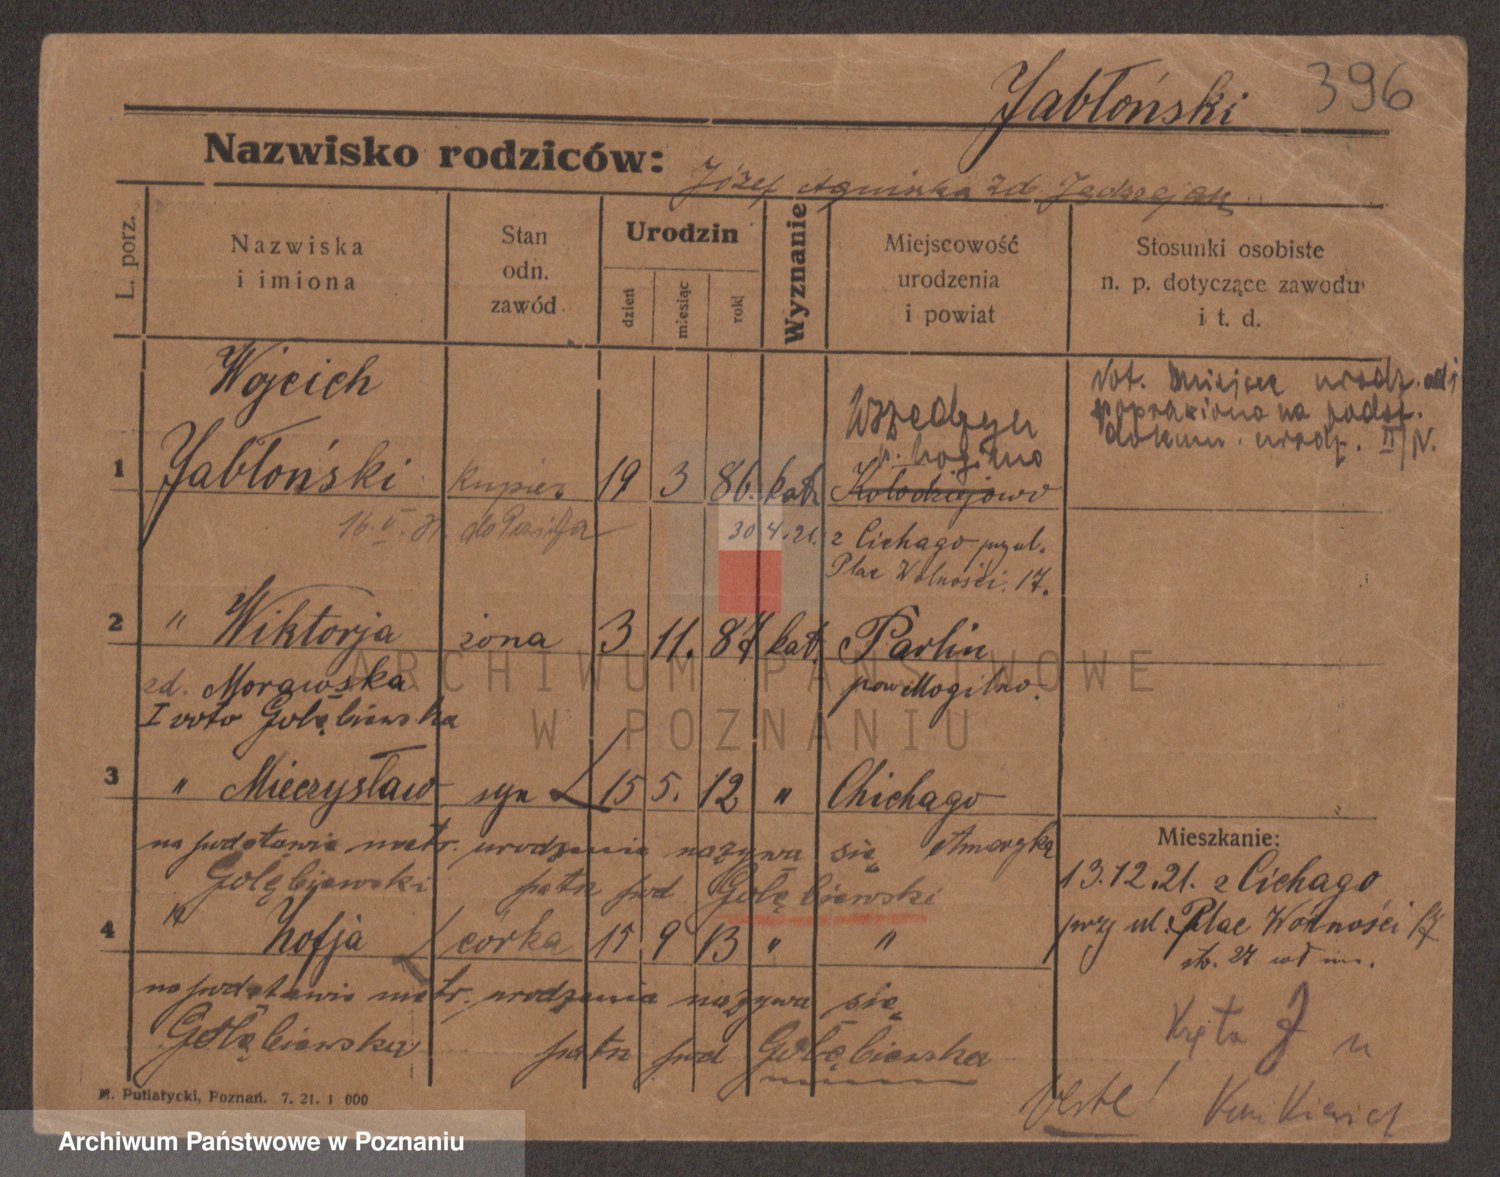 Jabłoński 396
Nazwisko rodziców:
Józef Agnieszka zd.
L. porz.
Nazwiska
i imiona
Stan
odn.
zawód
Urodzin
dzień
miesiąc
rok
Wyznanie
Miejscowość
urodzenia
i powiat
Stosunki osobiste
n. p. dotyczące zawodu
i t. d.
Wojcich
Not. miejsce urodz. ad 1
poprawiono na podst.
dokum. urodz. II/N.
Wszedzyn
p. Mogilno
1 Jabłoński kupiec 19 3 86. kath Kołodziejowo
16.V. do
30.4.21. z Cichago przy ul.
Plac Wolności 17.
2 " Wiktorja żona 3 11. 87 kat. Parlin
zd. Morawska pow Mogilno.
I voto Gołębiewska
3 " Mieczysław syn 15 5. 12 " Chichago
na podstawie metr. urodzenia nazywa się Ameryka
Gołębiewski patrz pod Gołębiewski
4 " Zofja córka 15 9 13 " "
na podstawie metr. urodzenia nazywa się
Gołębiewska patrz pod Gołębiewska
Mieszkanie:
13.12.21. z Cichago
przy ul. Plac Wolności 17
Kręta 7
verte!
M. Putiatycki, Poznań. 7. 21. 1 000
ARCHIWUM PAŃSTWOWE
W POZNANIU
Archiwum Państwowe w Poznaniu